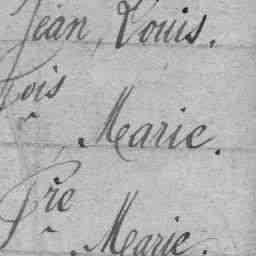 Jean, Louis.
çois
Marie.
Pre
Marie.